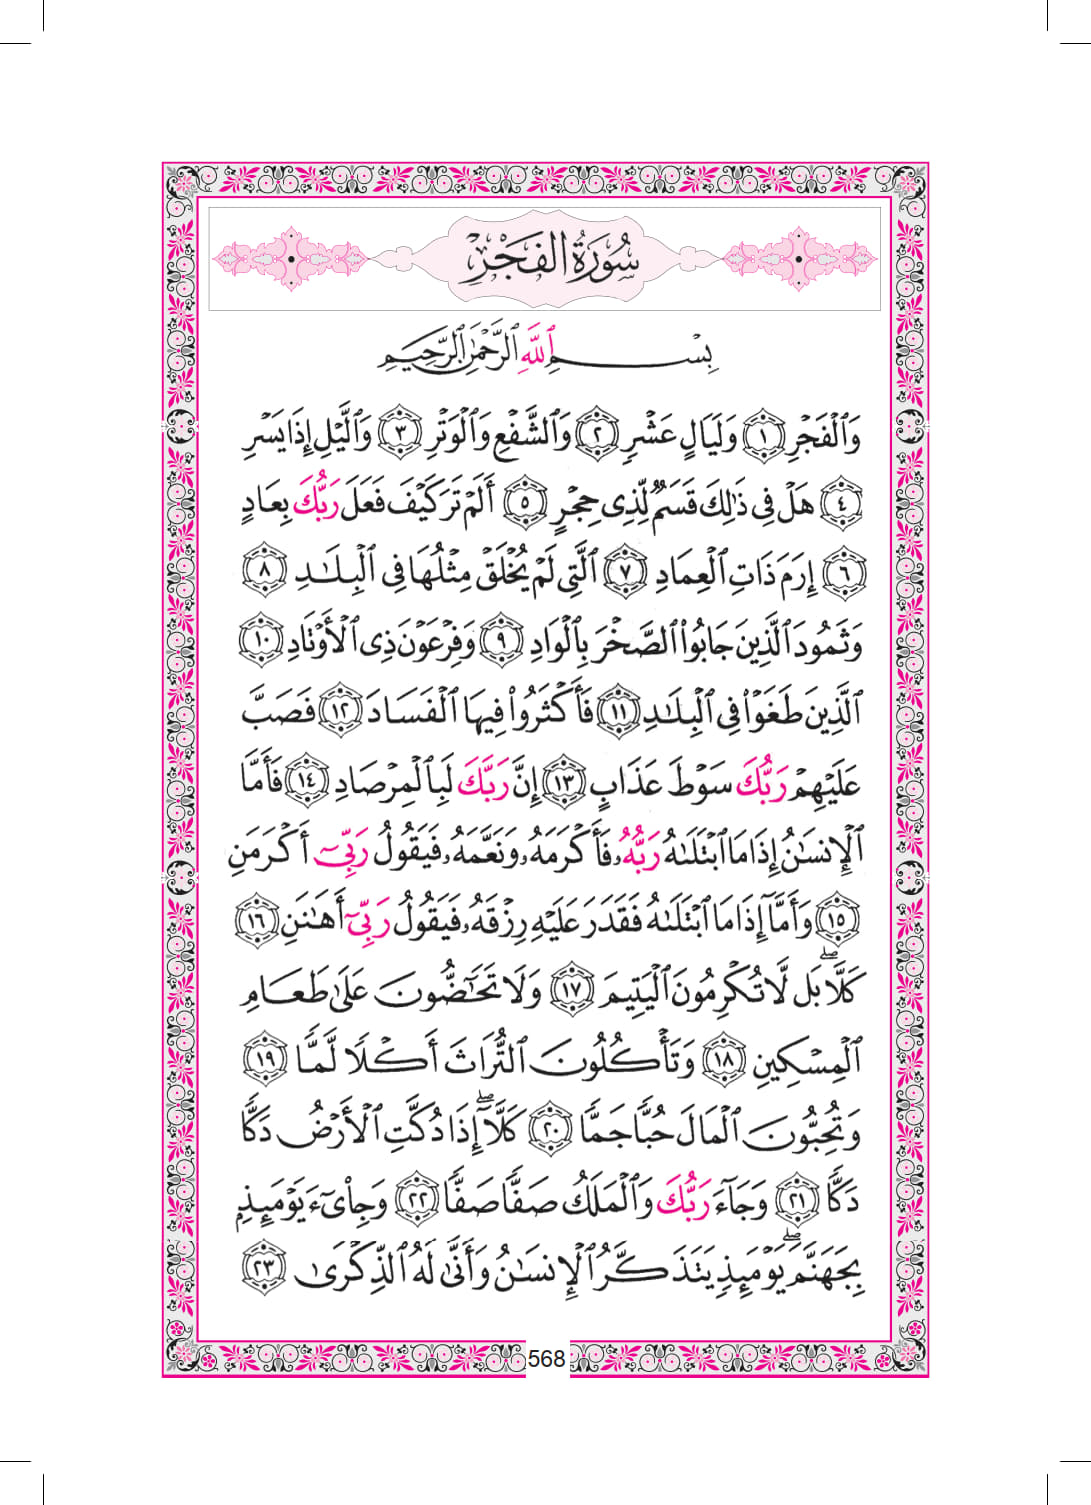 سُورَةُ الفَجْرِ
بِسْمِ ٱللَّهِ ٱلرَّحْمَٰنِ ٱلرَّحِيمِ
وَٱلْفَجْرِ ١ وَلَيَالٍ عَشْرٍ ٢ وَٱلشَّفْعِ وَٱلْوَتْرِ ٣ وَٱلَّيْلِ إِذَا يَسْرِ
٤ هَلْ فِى ذَٰلِكَ قَسَمٌ لِّذِى حِجْرٍ ٥ أَلَمْ تَرَ كَيْفَ فَعَلَ رَبُّكَ بِعَادٍ
٦ إِرَمَ ذَاتِ ٱلْعِمَادِ ٧ ٱلَّتِى لَمْ يُخْلَقْ مِثْلُهَا فِى ٱلْبِلَـٰدِ ٨
وَثَمُودَ ٱلَّذِينَ جَابُوا۟ ٱلصَّخْرَ بِٱلْوَادِ ٩ وَفِرْعَوْنَ ذِى ٱلْأَوْتَادِ ١٠
ٱلَّذِينَ طَغَوْا۟ فِى ٱلْبِلَـٰدِ ١١ فَأَكْثَرُوا۟ فِيهَا ٱلْفَسَادَ ١٢ فَصَبَّ
عَلَيْهِمْ رَبُّكَ سَوْطَ عَذَابٍ ١٣ إِنَّ رَبَّكَ لَبِٱلْمِرْصَادِ ١٤ فَأَمَّا
ٱلْإِنسَـٰنُ إِذَا مَا ٱبْتَلَىٰهُ رَبُّهُۥ فَأَكْرَمَهُۥ وَنَعَّمَهُۥ فَيَقُولُ رَبِّىٓ أَكْرَمَنِ
١٥ وَأَمَّآ إِذَا مَا ٱبْتَلَىٰهُ فَقَدَرَ عَلَيْهِ رِزْقَهُۥ فَيَقُولُ رَبِّىٓ أَهَـٰنَنِ ١٦
كَلَّا ۖ بَل لَّا تُكْرِمُونَ ٱلْيَتِيمَ ١٧ وَلَا تَحَـٰٓضُّونَ عَلَىٰ طَعَامِ
ٱلْمِسْكِينِ ١٨ وَتَأْكُلُونَ ٱلتُّرَاثَ أَكْلًا لَّمًّا ١٩
وَتُحِبُّونَ ٱلْمَالَ حُبًّا جَمًّا ٢٠ كَلَّآ ۖ إِذَا دُكَّتِ ٱلْأَرْضُ دَكًّا
دَكًّا ٢١ وَجَآءَ رَبُّكَ وَٱلْمَلَكُ صَفًّا صَفًّا ٢٢ وَجِا۟ىٓءَ يَوْمَئِذٍۭ
بِجَهَنَّمَ ۚ يَوْمَئِذٍ يَتَذَكَّرُ ٱلْإِنسَـٰنُ وَأَنَّىٰ لَهُ ٱلذِّكْرَىٰ ٢٣
568